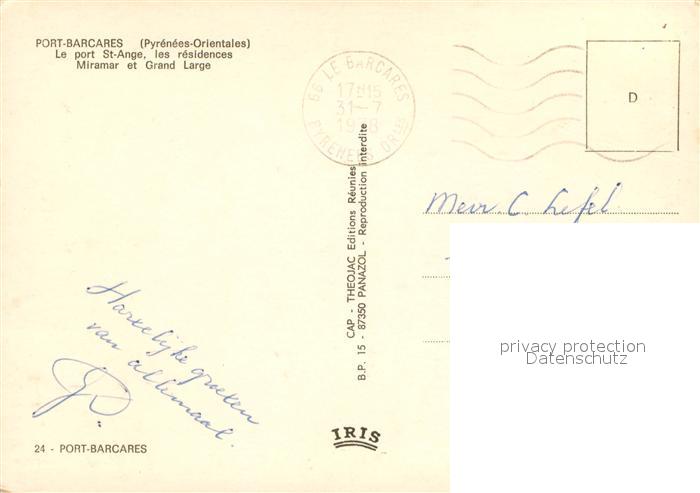 PORT-BARCARES (Pyrénées-Orientales)
Le port St-Ange, les résidences
Miramar et Grand Large
66 LE BARCARES
17H15
31-7
PYRENEES OR^LES
D
CAP - THEOJAC Editions Réunies
B.P. 15 - 87350 PANAZOL - Reproduction interdite
Mevr. C. Lefel
privacy protection
Datenschutz
Hartelijke groeten
van allemaal.
IRIS
24 - PORT-BARCARES